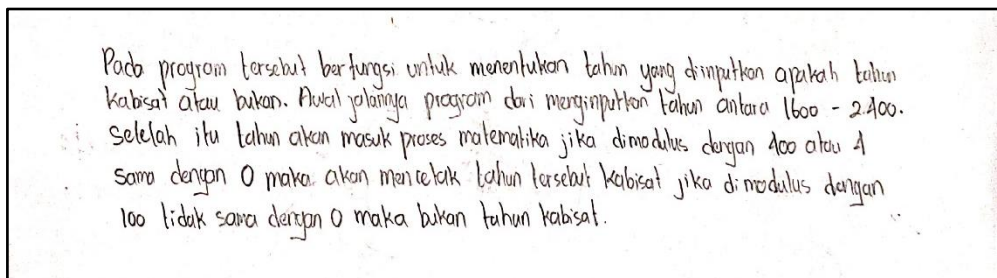 Pada program tersebut berfungsi untuk menentukan tahun yang diinputkan apakah tahun
kabisat atau bukan. Awal jalannya program dari menginputkan tahun antara 1600 - 2.400.
Setelah itu tahun akan masuk proses matematika jika dimodulus dengan 400 atau 4
sama dengan 0 maka akan mencetak tahun tersebut kabisat jika di modulus dengan
100 tidak sama dengan 0 maka bukan tahun kabisat.